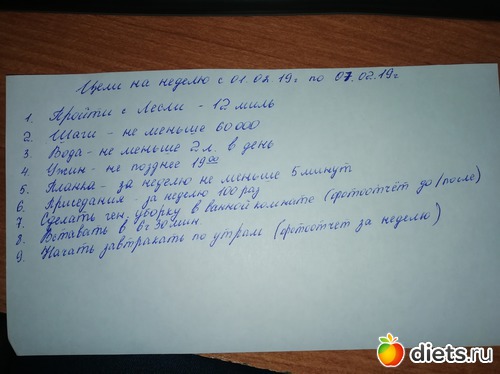 Цели на неделю с 01.02.19г по 07.02.19г
1. Пройти с Лесли - 12 миль
2. Шаги - не меньше 60000
3. Вода - не меньше 2л. в день
4. Ужин - не позднее 19 00
5. Планка - за неделю не меньше 5 минут
6. Приседания - за неделю 100 раз
7. Сделать ген. уборку в ванной комнате (фотоотчёт до/после)
8. Вставать в 6ч 30мин
9. Начать завтракать по утрам (фотоотчет за неделю)
diets.ru